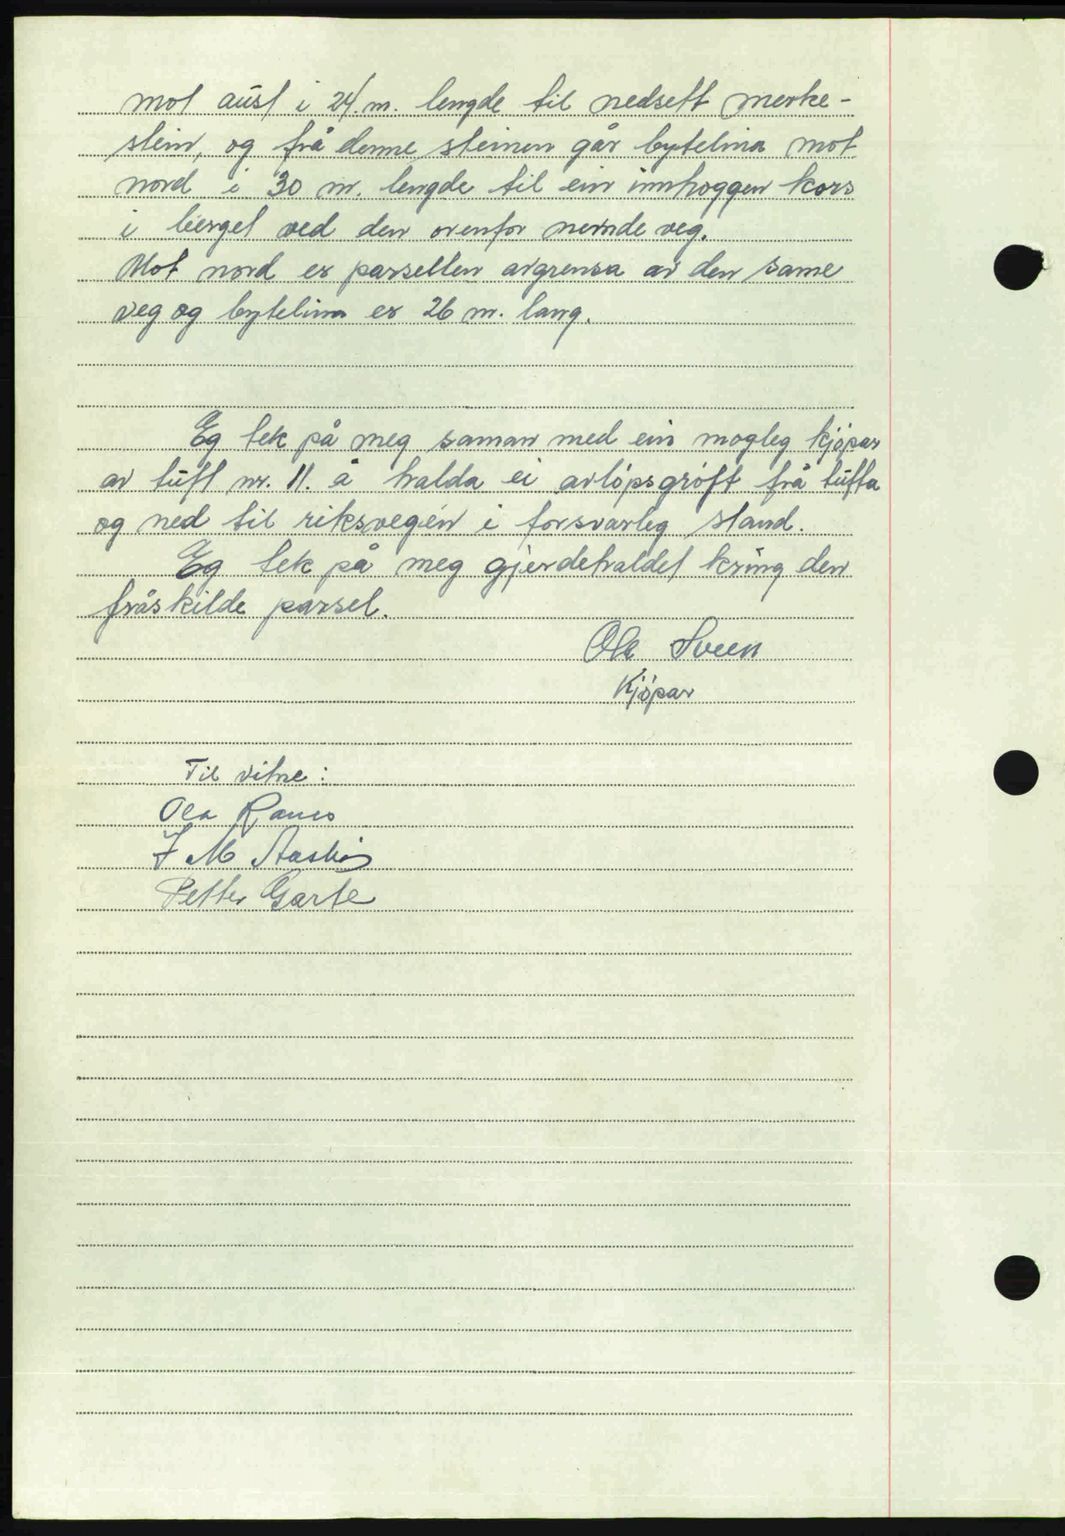 mot aust i 24. m. lengde til nedsett merke-
stein, og frå denne steinen går bytelina mot
nord i 30 m. lengde til ein innhoggen kors
i berget ved den ovenfor nemnde veg.
Mot nord er parsellen avgrensa av den same
veg og bytelina er 26 m. lang.
Eg tek på meg saman med ein mogleg kjøpar
av tuft nr. 11. å halda ei avløpsgrøft frå tufta
og ned til riksvegen i forsvarleg stand.
Eg tek på meg gjerdehaldet kring den
fråskilde parsel.
Ola Sveen
Kjøpar
Til vitne:
Ola
J M
Petter Garte